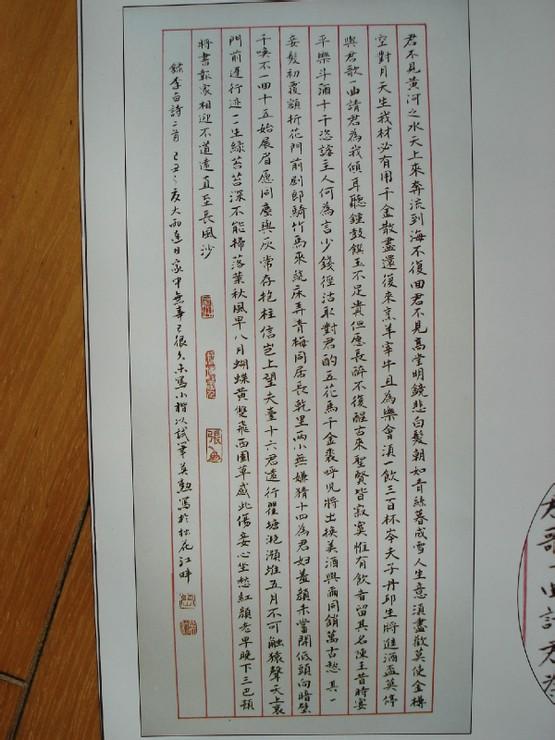 君不見黃河之水天上來奔流到海不復回君不見高堂明鏡悲白髮朝如青絲暮成雪人生意須盡歡莫使金樽
空對月天生我材必有用千金散盡還復來烹羊宰牛且為樂會須一飲三百杯岑夫子丹邱生將進酒盃莫停
與君歌一曲請君為我傾耳聽鍾鼓饌玉不足貴但愿長醉不復醒古來聖賢皆寂寞惟有飲者留其名陳王昔時宴
平樂斗酒十千恣謔主人何為言少錢徑沽取對君酌五花馬千金裘呼兒將出換美酒與爾同銷萬古愁其一
妾髮初覆額折花門前劇郎騎竹馬來繞床弄青梅同居長乾里兩小無嫌猜十四為君婦羞顏未嘗開低頭向暗壁
千喚不一回十五始展眉愿同塵與灰常存抱柱信豈上望夫臺十六君遠行瞿塘灩澦堆五月不可觸猿聲天上哀
門前遲行迹一一生綠苔苔深不能掃落葉秋風早八月蝴蝶黃雙飛西園草感此傷妾心坐愁紅顏老早晚下三巴預
將書報家相迎不道遠直至長風沙
錄李白詩二首 己丑之夏大雨連日家中無事已很久未寫小楷以試筆英勳寫於松花江畔